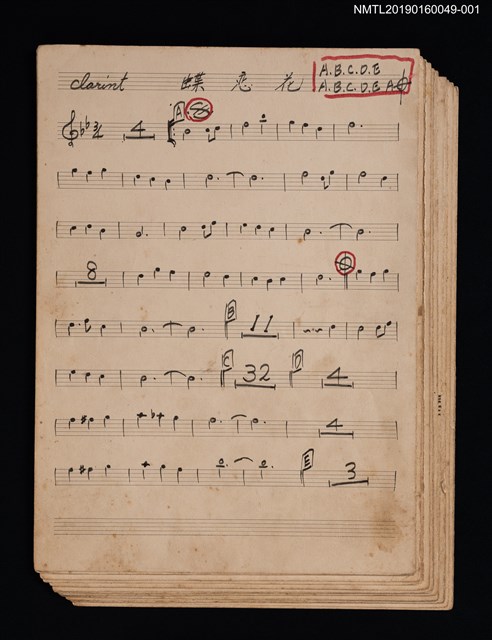 NMTL20190160049-001
clarint 蝶 恋 花
A.B.C.D.E
A.B.C.D.E A
3/4 4 A
8
B 11
C 32 D 4
4
E 3